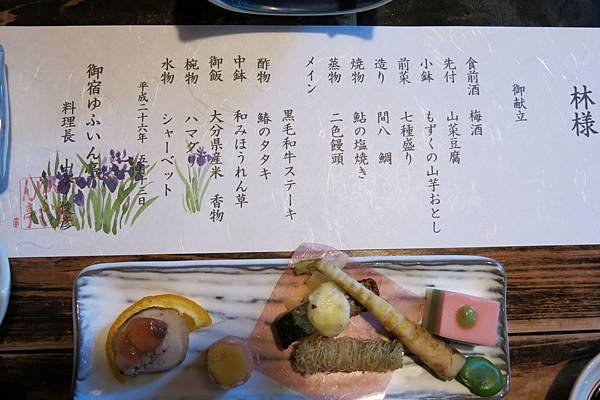 林様
御献立
食前酒 梅酒
先付 山菜豆腐
小鉢 もずくの山芋おとし
前菜 七種盛り
造り 間八 鯛
焼物 鮎の塩焼き
蒸物 二色饅頭
メイン
黒毛和牛ステーキ
酢物 鰆のタタキ
中鉢 和みほうれん草
御飯 大分県産米 香物
椀物 ハマグリ
水物 シャーベット
平成二十六年 五月十三日
御宿ゆふいん亭
料理長